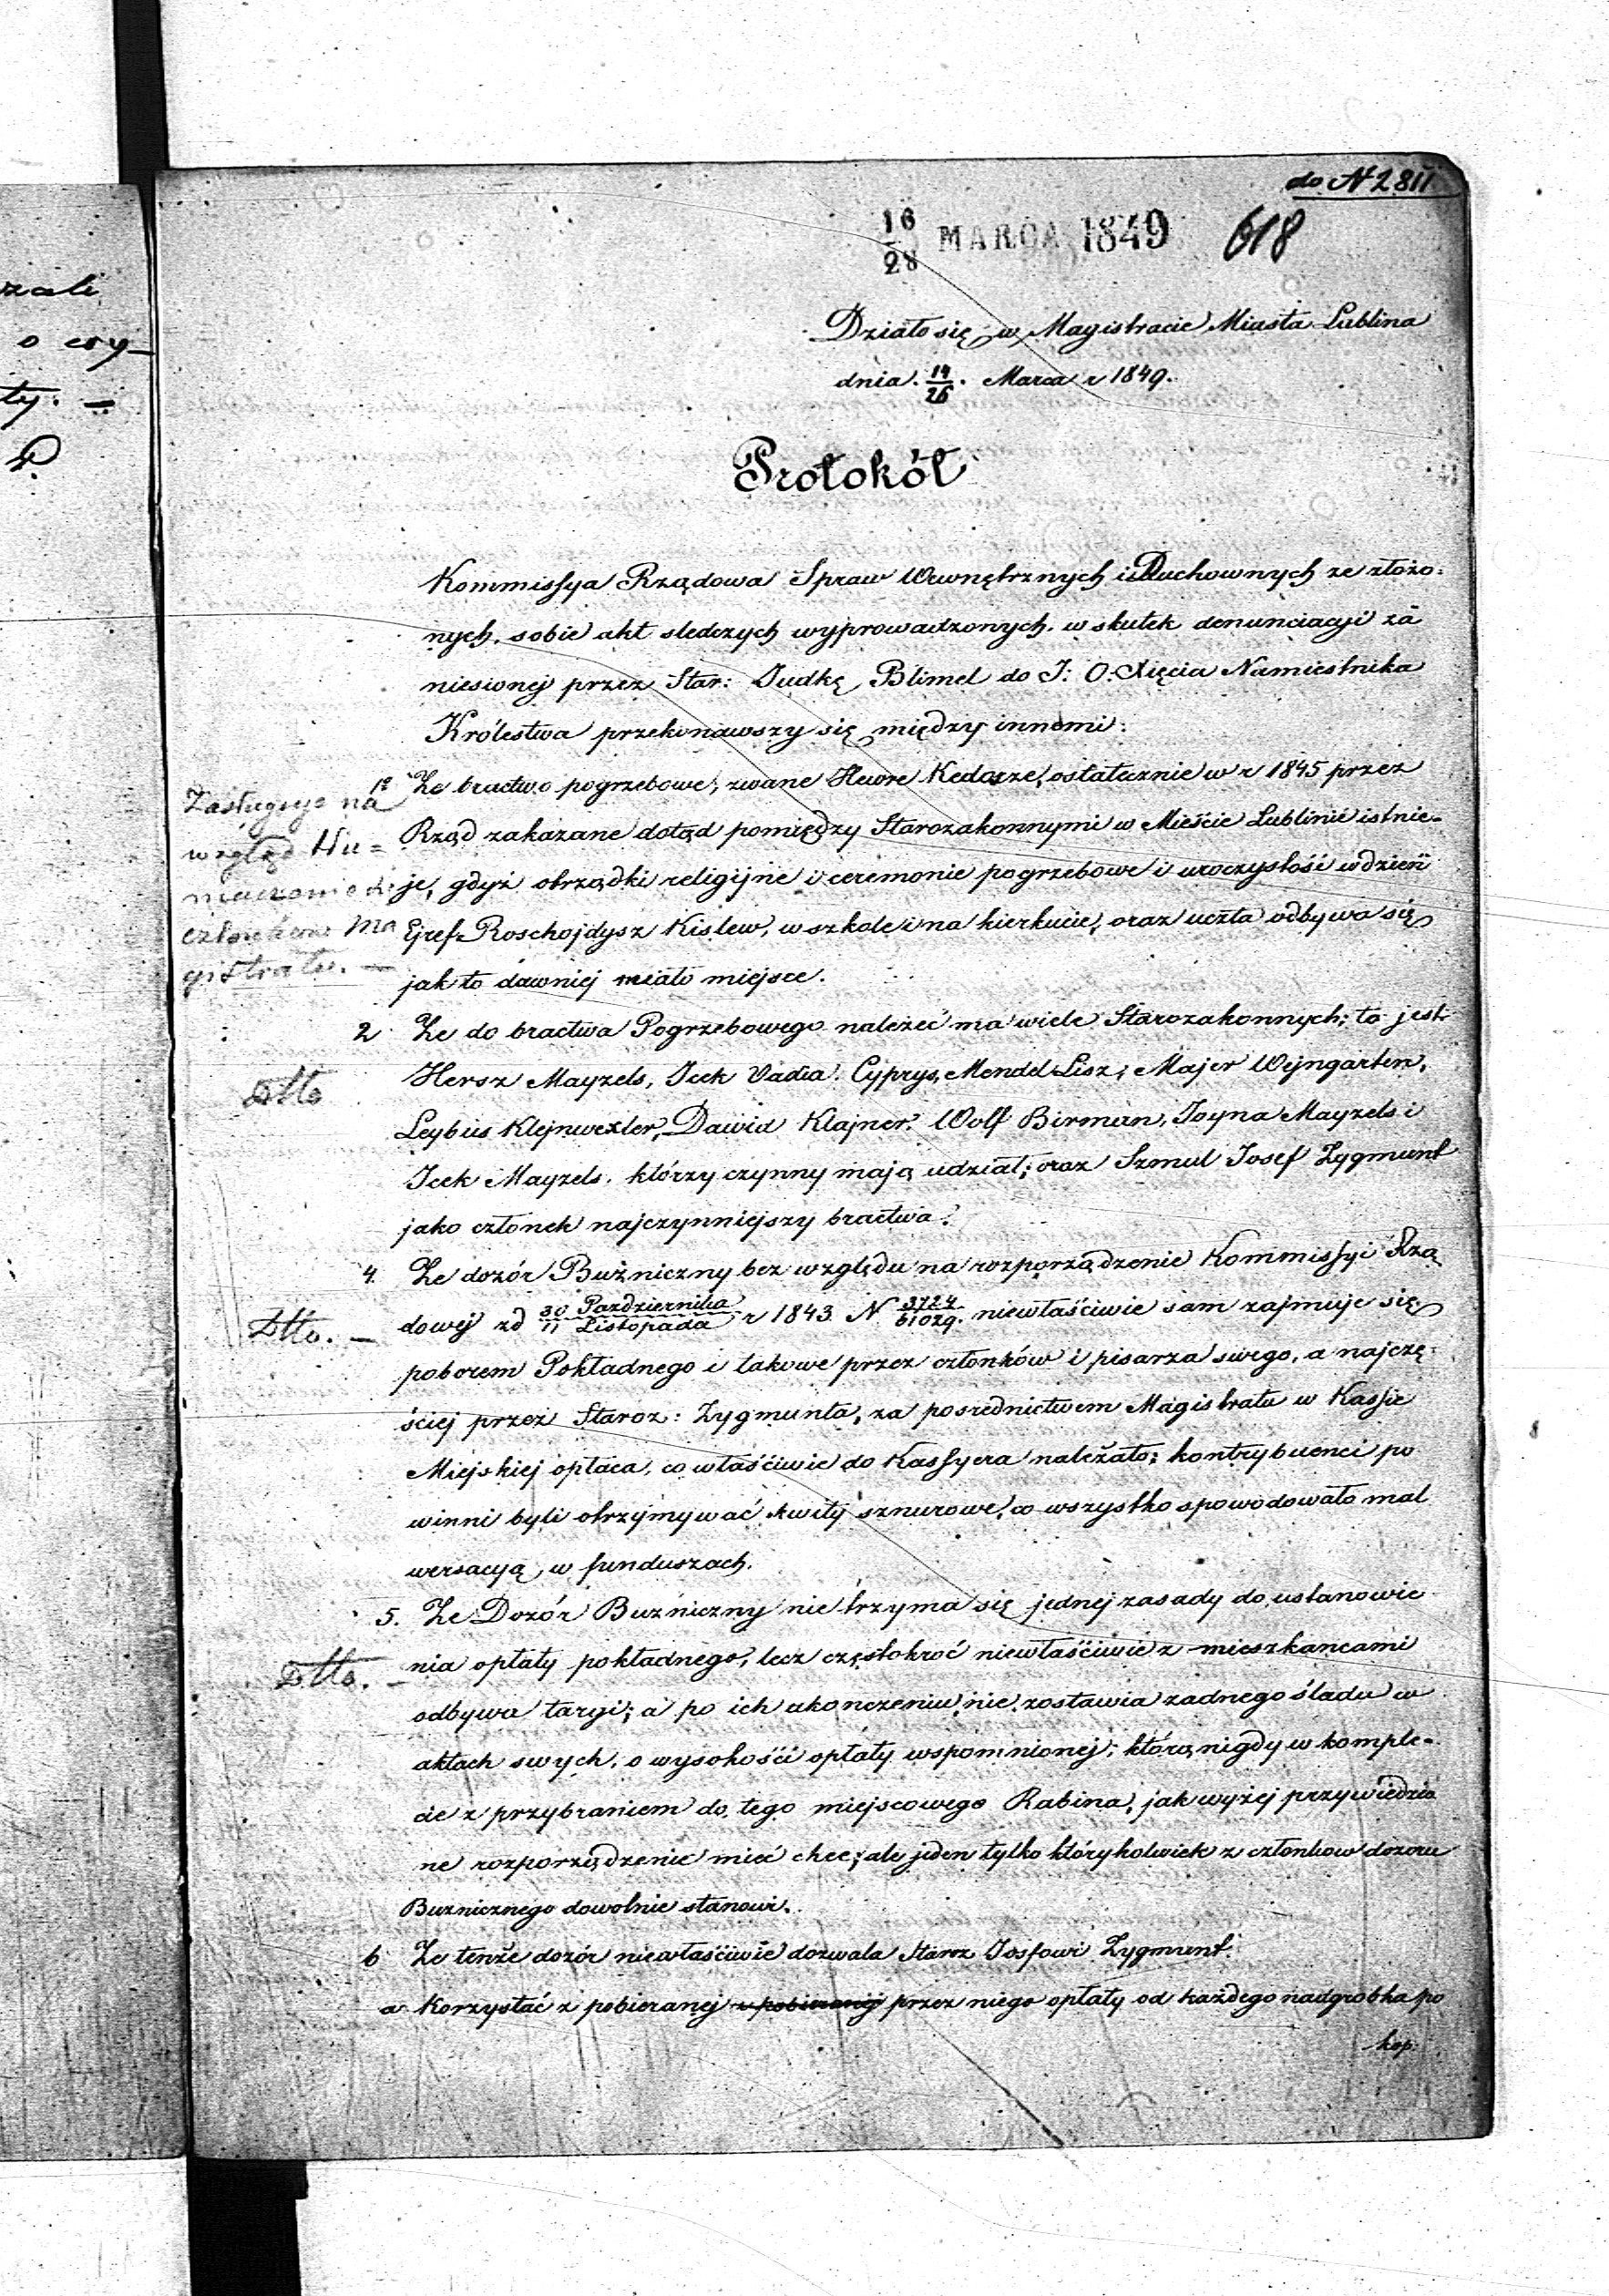 zali
o wy-
ty. -
do N 2811
16/28 MARCA 1849
618
Działo się w Magistracie Miasta Lublina
dnia 14/26 Marca r 1849.
Protokół
Kommissya Rządowa Spraw Wewnętrznych i Duchownych ze złożo-
nych sobie akt sledczych wyprowadzonych w skutek denunciacyi za
niesionej przez Star: Judkę Blimel do J: O. Xięcia Namiestnika
Królestwa przekonawszy się między innemi:
1e Że bractwo pogrzebowe, zwane Hewre Kedosze, ostatecznie w r 1845 przez
Rząd zakazane dotąd pomiędzy Starozakonnymi w Mieście Lublinie istnie-
je, gdyż obrządki religijne i ceremonie pogrzebowe i uroczystość w dzień
Ejref Roschojdysz Kislew, w szkole i na kierkucie, oraz uczta odbywa się
jak to dawniej miało miejsce.
Zasługuje na
wzgląd
członków Ma
gistratu. -
2 Że do bractwa Pogrzebowego należeć ma wiele Starozakonnych; to jest
Hersz Mayzels, Icek Vadia Cyprys, Mendel Lisz, Majer Wejngarten,
Leybus Klejnwexler, Dawid Klajner, Wolf Birman, Joyna Mayzels i
Icek Mayzels, którzy czynny mają udział; oraz Szmul Josef Zygmunt
jako członek najczynniejszy bractwa.
Dtto
4. Że dozór Bużniczny bez względu na rozporządzenie Kommissyi Rzą
dowej zd 30 Pazdziernika/11 Listopada r 1843 N 3724/61029. niewłaściwie sam zajmuje się
poborem Pokładnego i takowe przez członków i pisarza swego, a najczę-
ściej przez Staroz: Zygmunta, za posrednictwem Magistratu w Kassie
Miejskiej opłaca, co właściwie do Kassyera należało; kontrybuenci po
winni byli otrzymywać kwity sznurowe, co wszystko spowodowało mal
wersacyą w funduszach.
Dtto. -
5. Że Dozór Buzniczny nie trzyma się jednej zasady do ustanowie
nia opłaty pokładnego, lecz częstokroć niewłaściwie z mieszkancami
odbywa targi; a po ich ukonczeniu nie zostawia zadnego śladu w
aktach swych, o wysokości opłaty wspomnionej; którą nigdy w komple-
cie z przybraniem do tego miejscowego Rabina, jak wyżej przywiedzio
ne rozporządzenie mieć chce, ale jeden tylko którykolwiek z członkow dozoru
Buznicznego dowolnie stanowi.
Dtto. -
6 Że tenże dozór niewłaściwie dozwala Staroz Josfowi Zygmunt
a Korzystać z pobieranej z pobieranej przez niego opłaty od każdego nadgrobka po
kop.